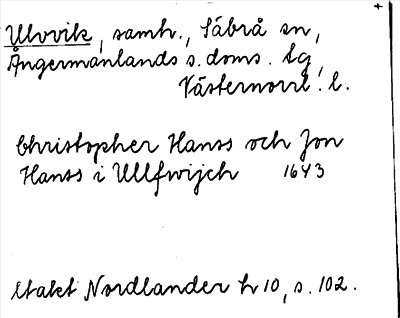 Ulvvik, samh., Säbrå sn,
Ångermanlands s. doms. tg,
Västernorrl. l.
Christopher Hanss och Jon
Hanss i Ullfwijch 1643
Nordlander h 10, s. 102.